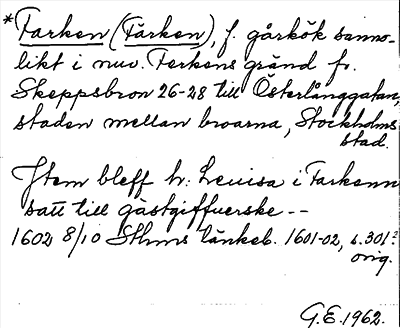 *Tarken (Tårken), f. gårkök sanno-
likt i nuv. Ferkens gränd fr.
Skeppsbron 26-28 till Österlånggatan,
staden mellan broarna, Stockholms
stad.
Jtem bleff h: Levisa i Tarkenn
satt till gästgiffuerske --
1602 8/10 Sthms tänkeb. 1601-02, s. 301:
orig.
G.E. 1962.